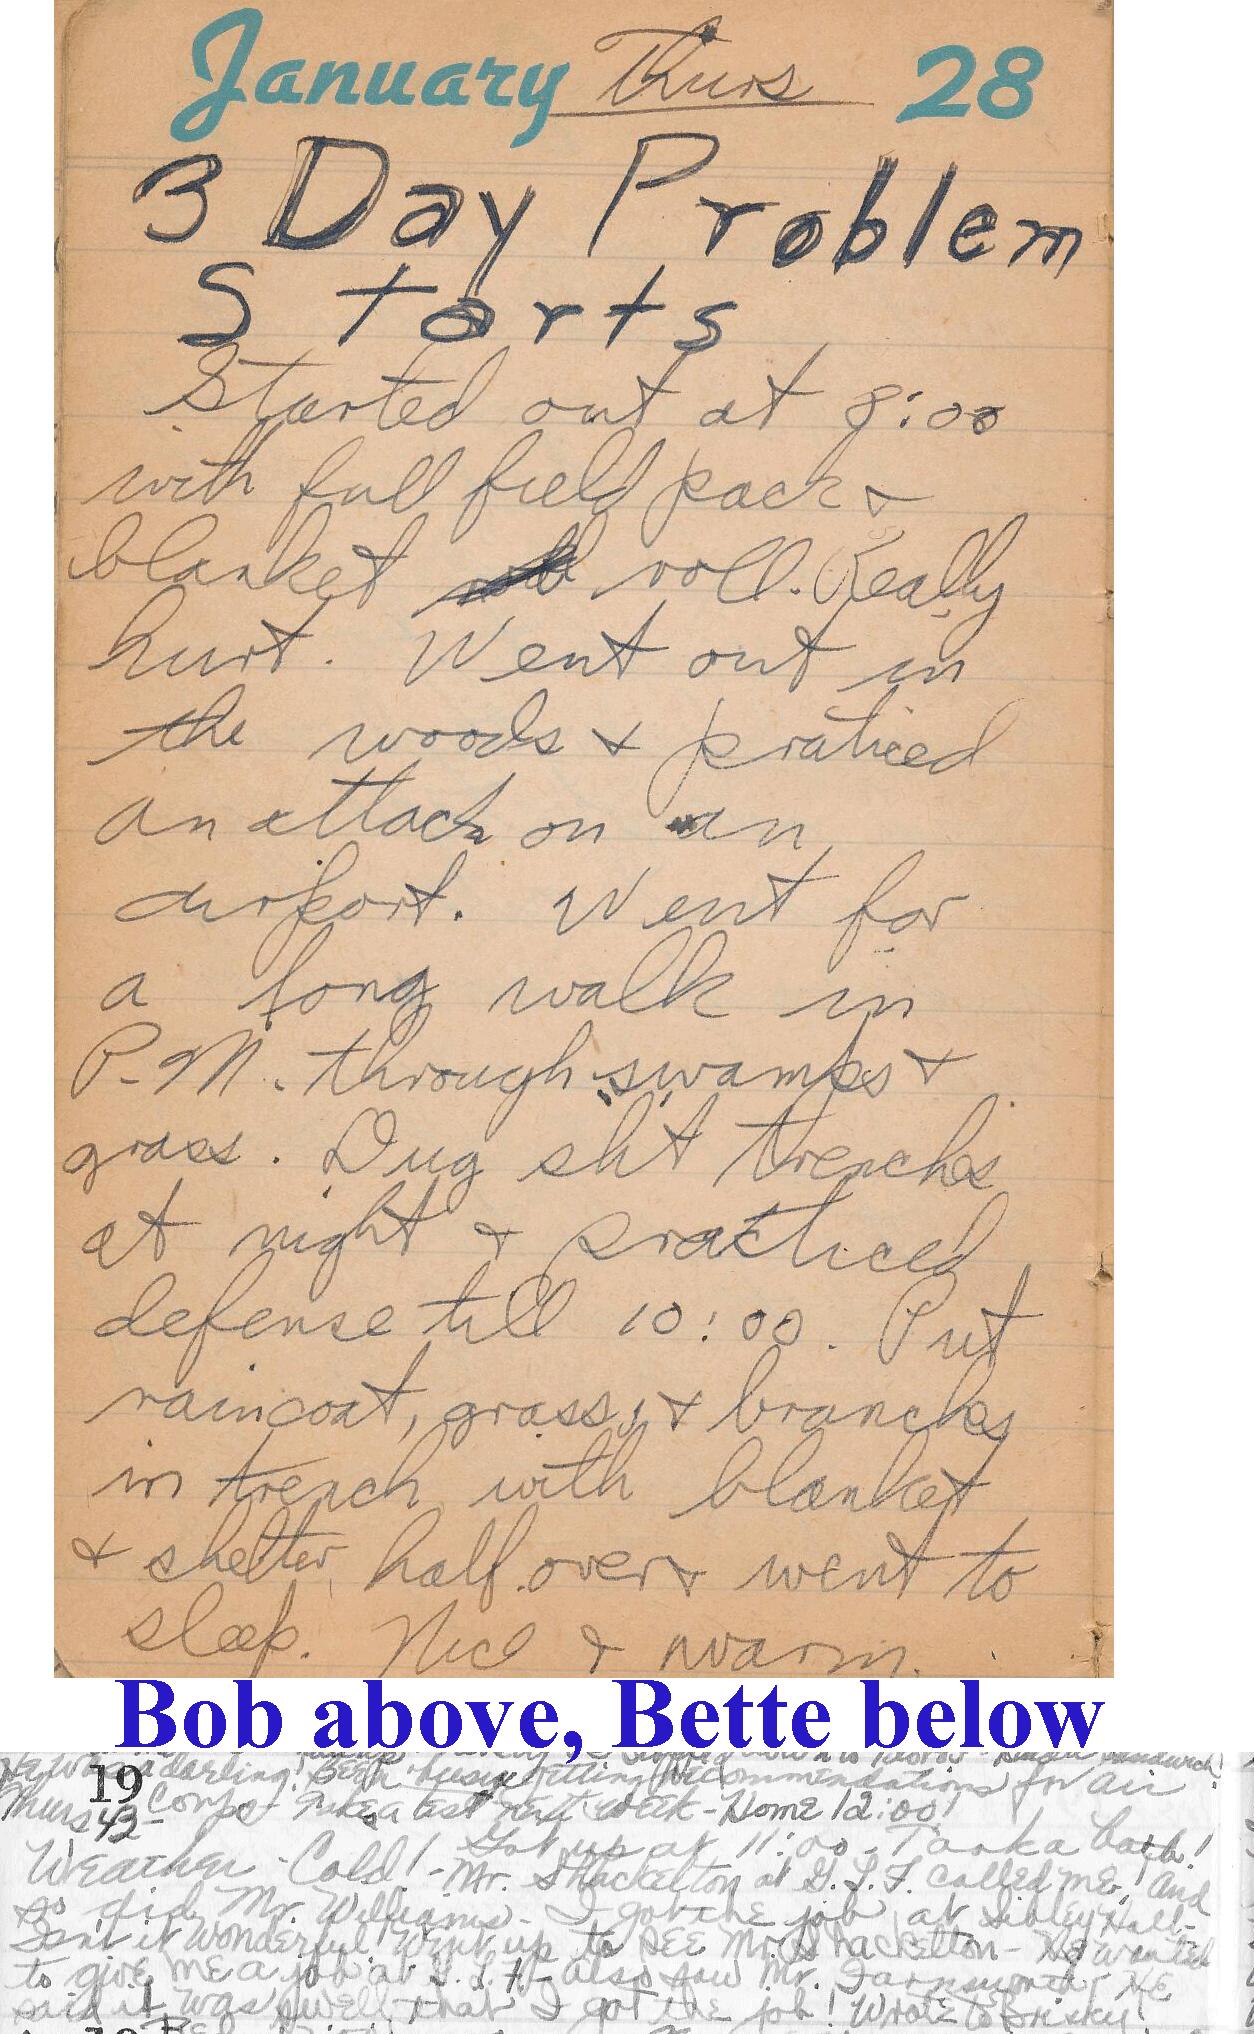 January Thurs 28
3 Day Problem
Starts
Started out at 8:00
with full field pack &
blanket roll. Really
hurt. Went out in
the woods & praticed
an attack on an
airport. Went for
a long walk in
P.M. through swamps &
grass. Dug slit trenches
at night & practiced
defense till 10:00. Put
raincoat, grass, & branches
in trench with blanket
& shelter half over & went to
sleep. Nice & warm.
Bob above, Bette below
darling! Been busy getting recommendations for air
19
Thurs 43 - Corps - take a test next week - Home 12:00!
Got up at 11:00 - Took a bath!
Weather - Cold! - Mr. Shackelton at G.L.F. called me! And
so did Mr. Williams - I got the job at Sibley Hall -
Isnt it wonderful went up to see Mr. Shackelton - He wanted
to give me a job at G.L.F. - also saw Mr. Farnsworth - He
said it was swell that I got the job! Wrote to Briskey!
19